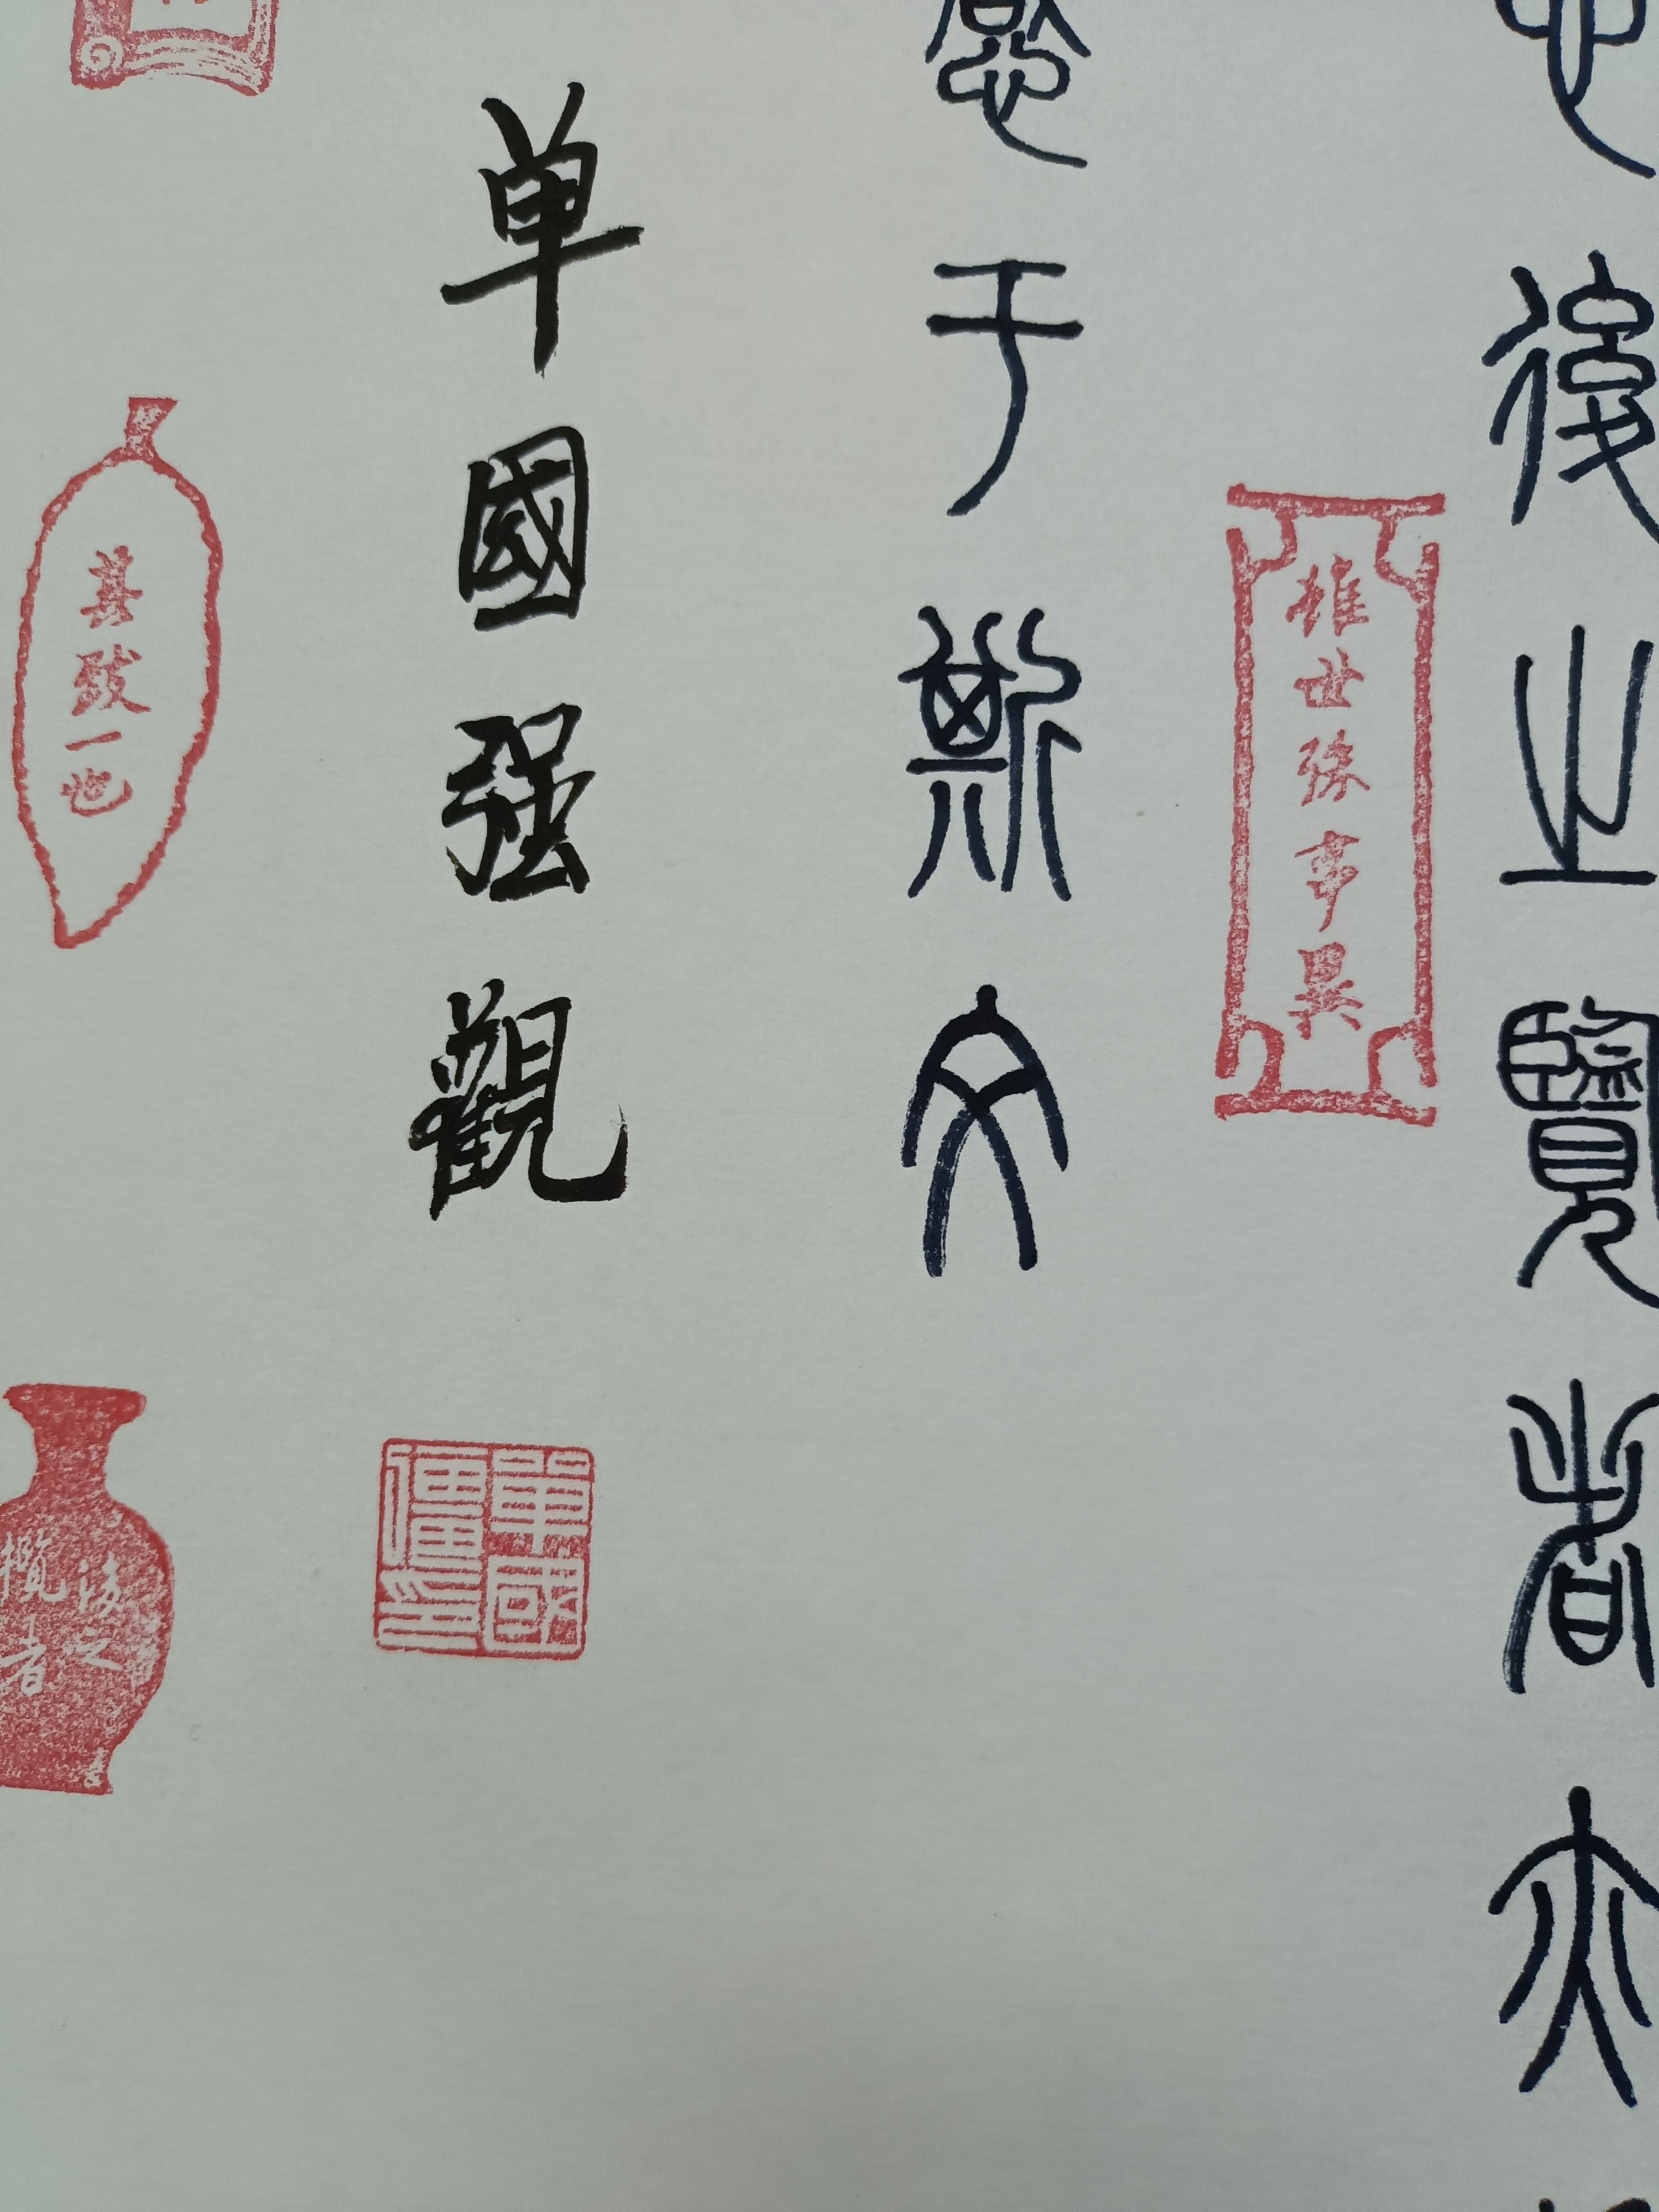 也後之覽者亦
雖世殊事異
感于斯文
单國强觀
單國
彊印
其致一也
後之
攬者